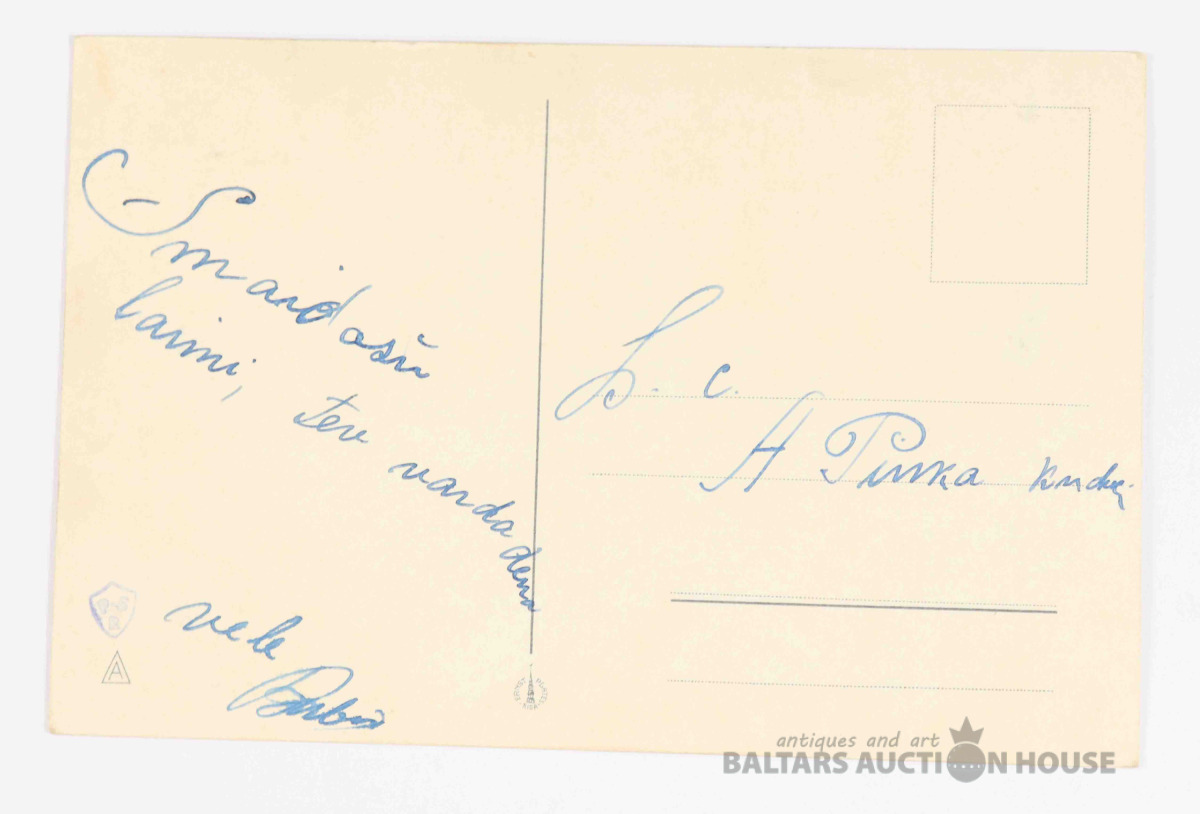 Smaidošu
laimi, tev varda dena
vele
L. c.
A Pinka kndzi.
A
antiques and art
BALTARS AUCTION HOUSE